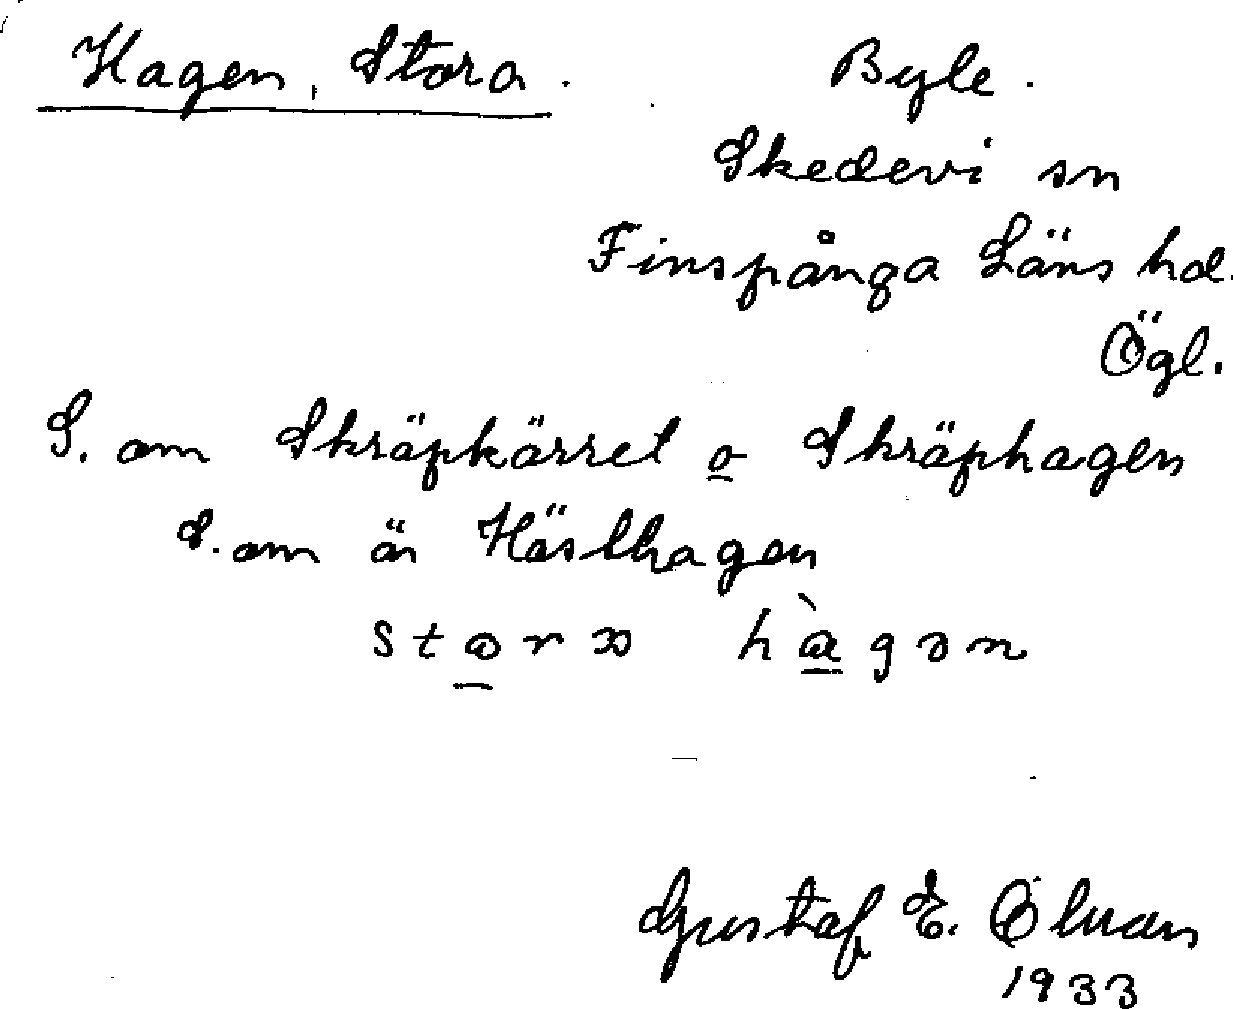 Hagen, Stora. Byle.
Skedevi sn
Finspånga Läns hd.
Ögl.
S. om Skräpkärret o Skräphagen
S. om är Hästhagen
stora hàgən
Gustaf E.
1933